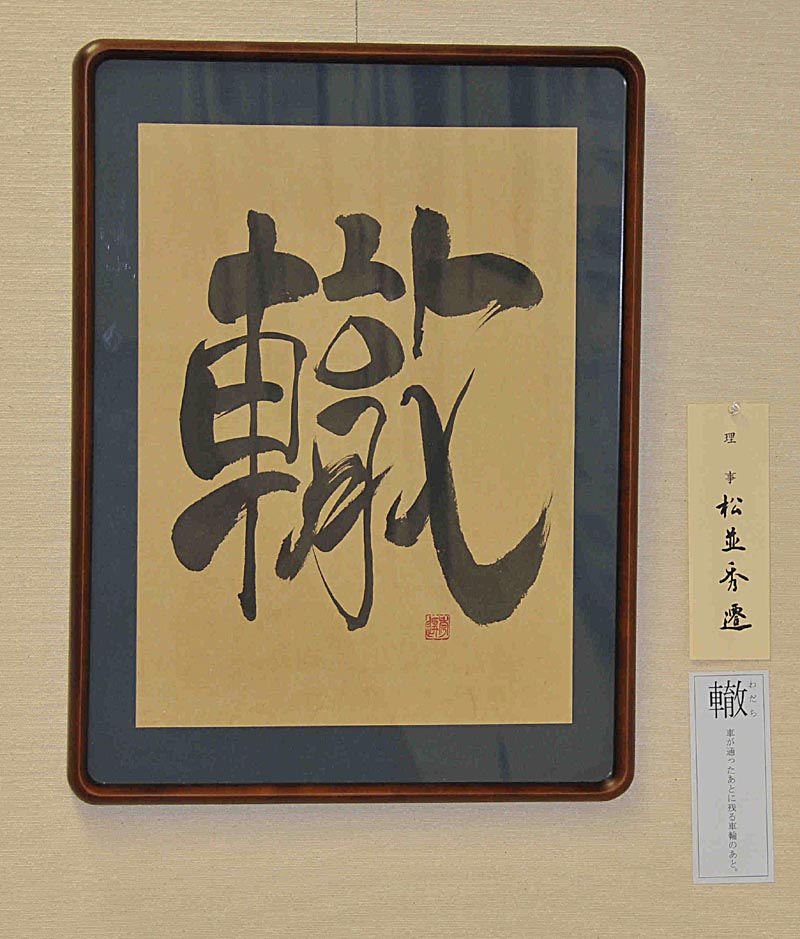 轍
理事
松並秀遷
轍
わだち
車が通ったあとに残る車輪のあと。